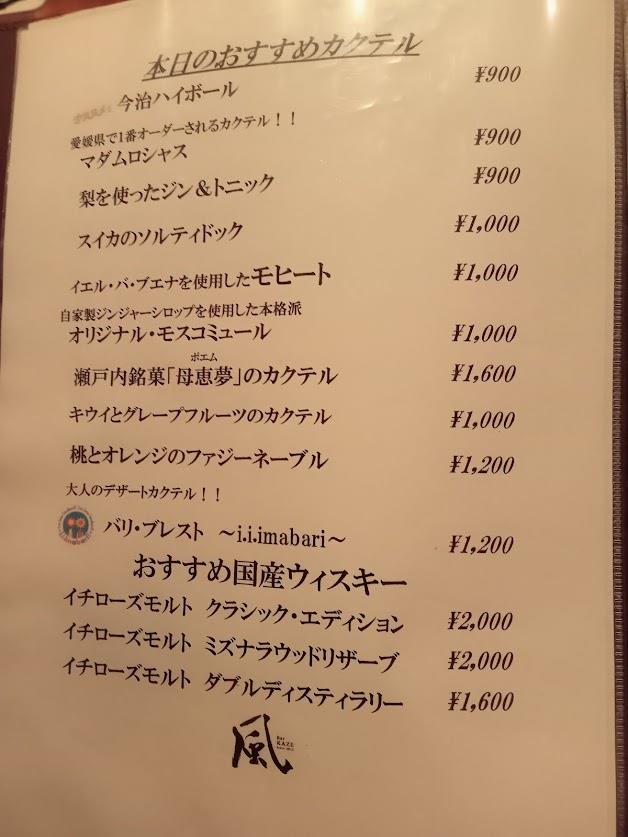 本日のおすすめカクテル
今治ハイボール ¥900
愛媛県で1番オーダーされるカクテル！！
マダムロシャス ¥900
梨を使ったジン＆トニック ¥900
スイカのソルティドック ¥1,000
イエル・バ・ブエナを使用したモヒート ¥1,000
自家製ジンジャーシロップを使用した本格派
オリジナル・モスコミュール ¥1,000
ポエム
瀬戸内銘菓「母恵夢」のカクテル ¥1,600
キウイとグレープフルーツのカクテル ¥1,000
桃とオレンジのファジーネーブル ¥1,200
大人のデザートカクテル！！
バリ・ブレスト ～i.i.imabari～ ¥1,200
おすすめ国産ウィスキー
イチローズモルト クラシック・エディション ¥2,000
イチローズモルト ミズナラウッドリザーブ ¥2,000
イチローズモルト ダブルディスティラリー ¥1,600
風
Bar
KAZE